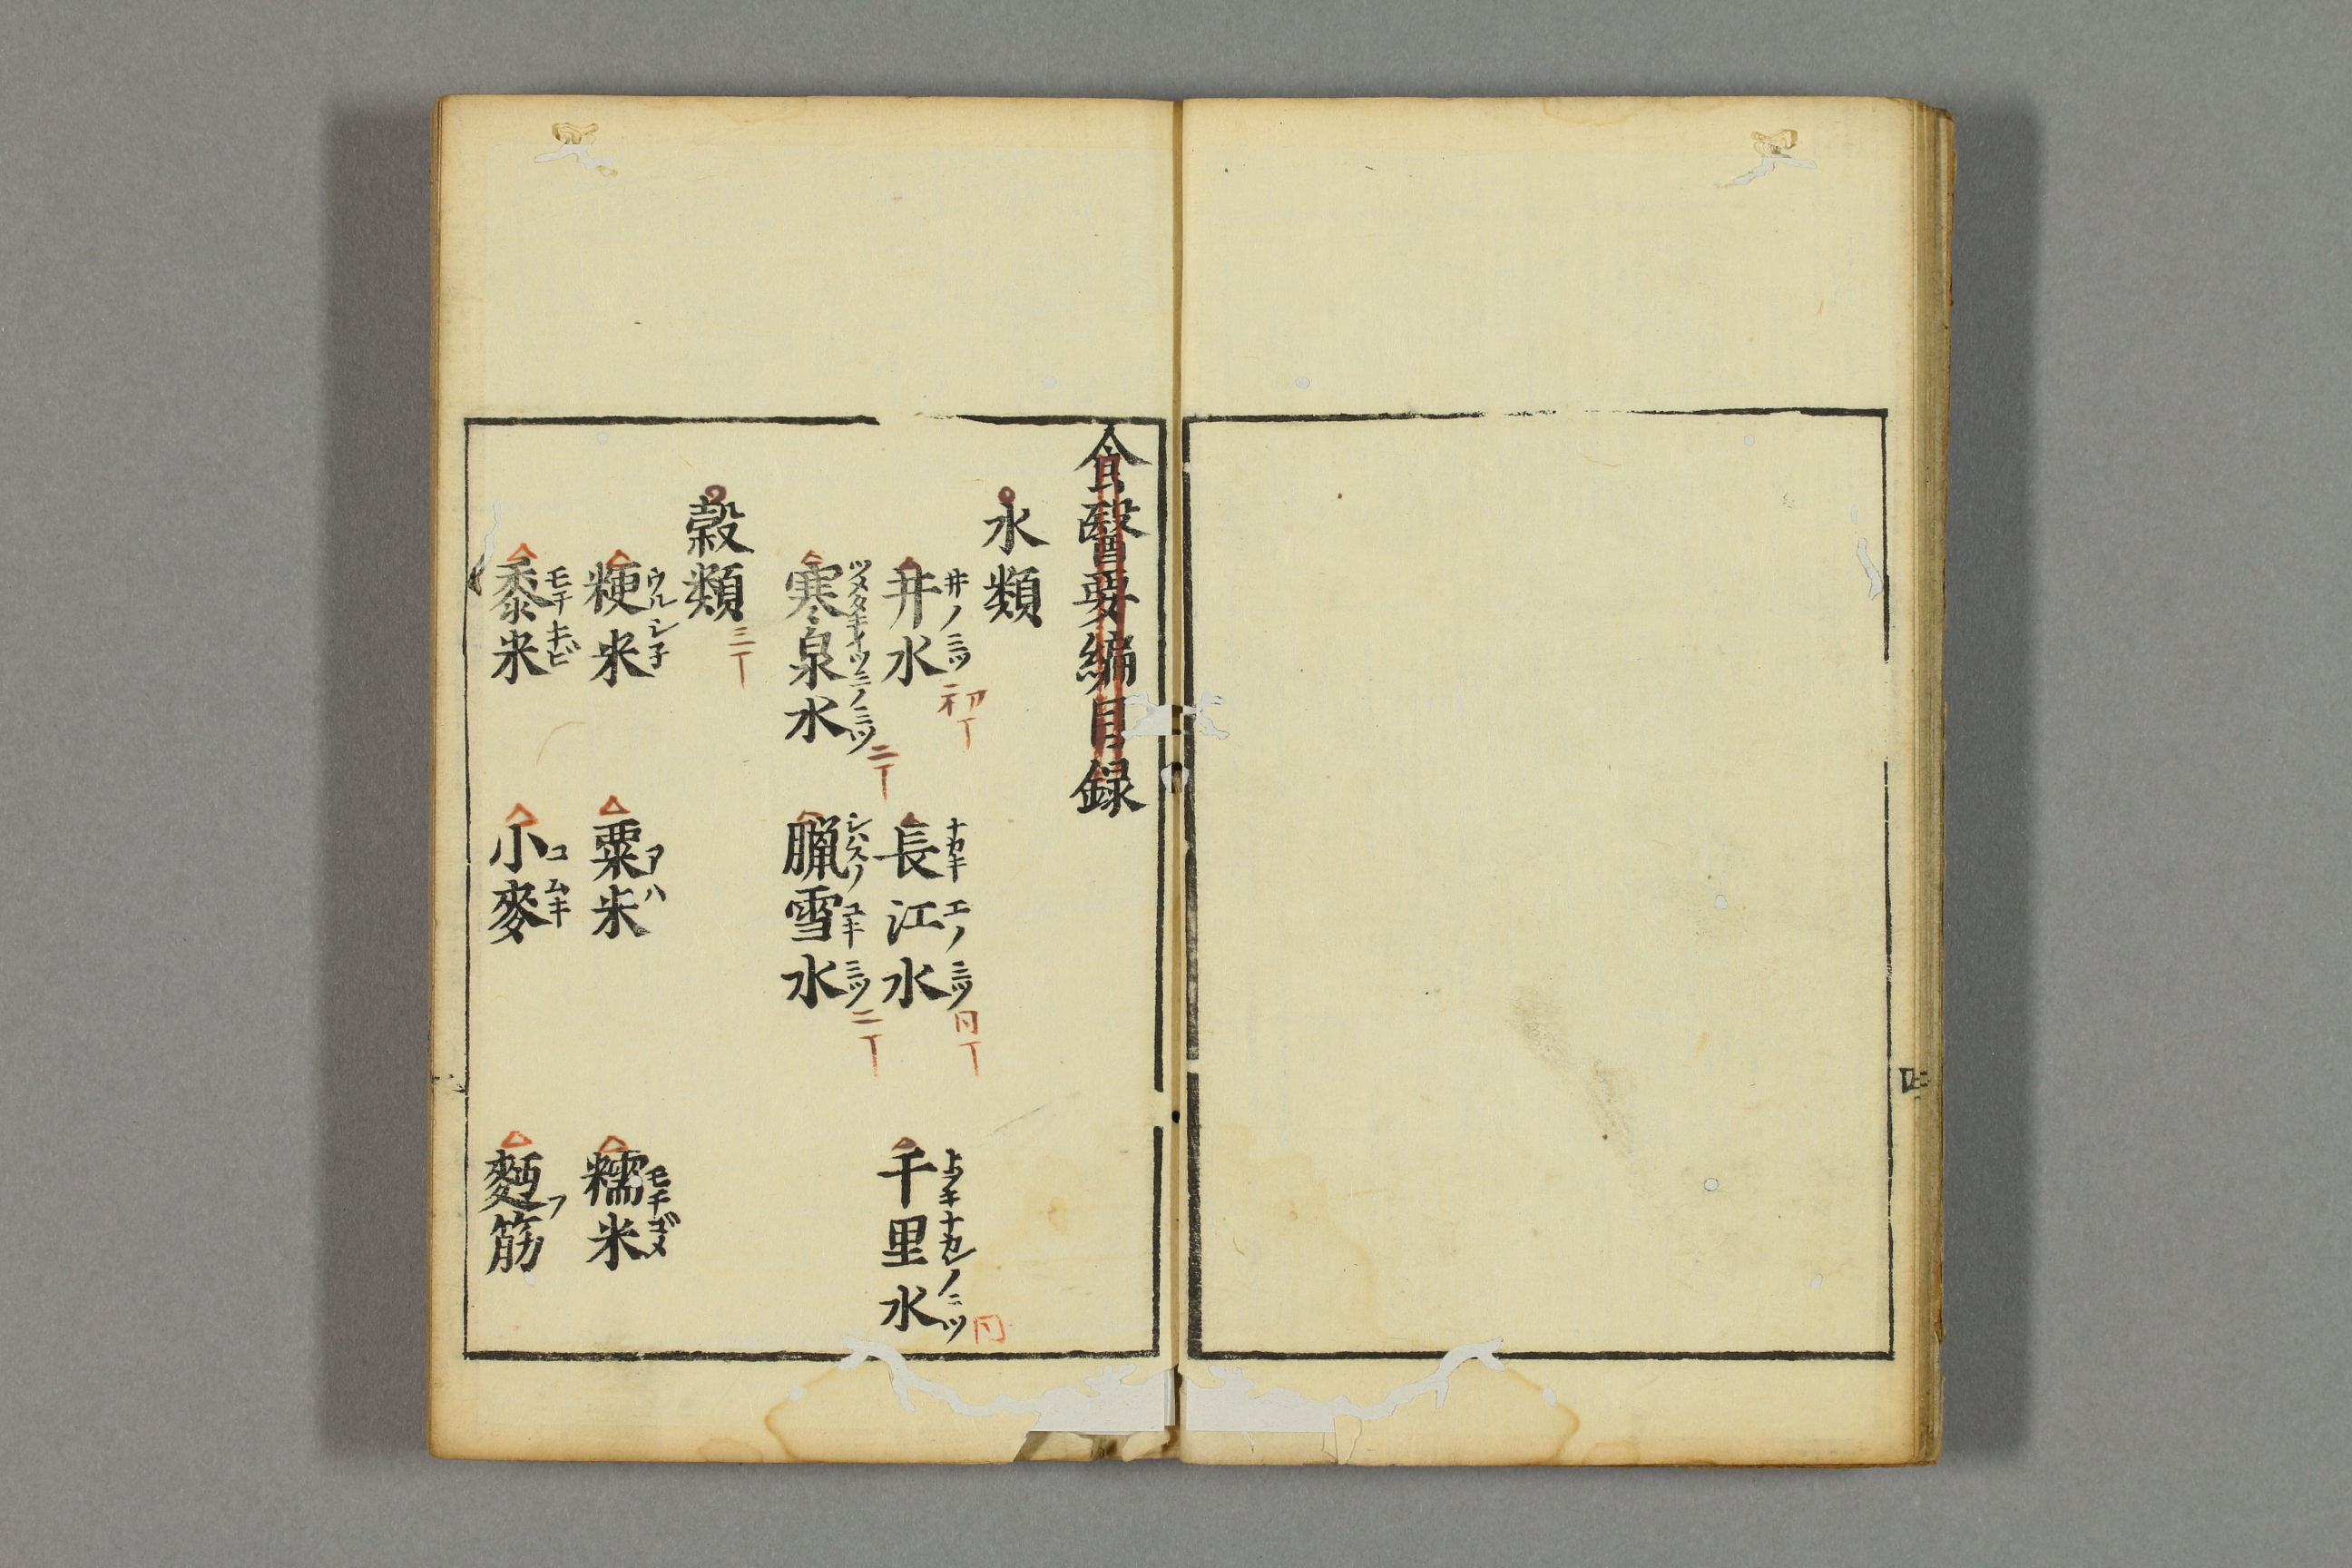 食醫要編目録
水類
井水 井ノミツ 初丁
長江水 ナカキエノミツ 同丁
千里水 トヲキナカレノミツ 同
寒泉水 ツメタキイツミノミツ 二丁
臘雪水 シハスノユキミツ 二丁
穀類 三丁
粳米 ウルシ子
粟米 アハ
糯米 モチゴメ
黍米 モチキビ
小麥 コムキ
麪筋 フ